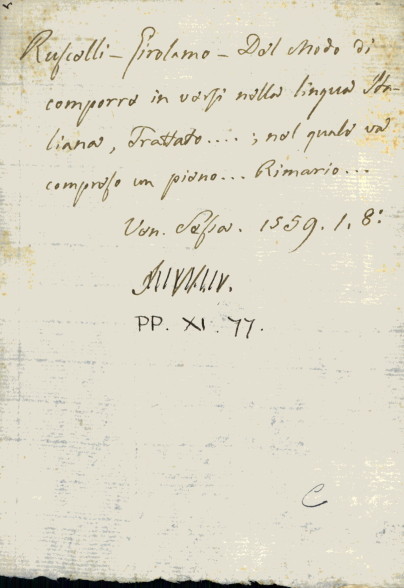 Ruscelli - Girolamo - Del Modo di
comporre in versi nella lingua Ita-
liana, Trattato....; nel quale va
compreso un pieno... Rimario...
Ven. Sessa. 1559. 1. 8:
PP. XI. 77.
C